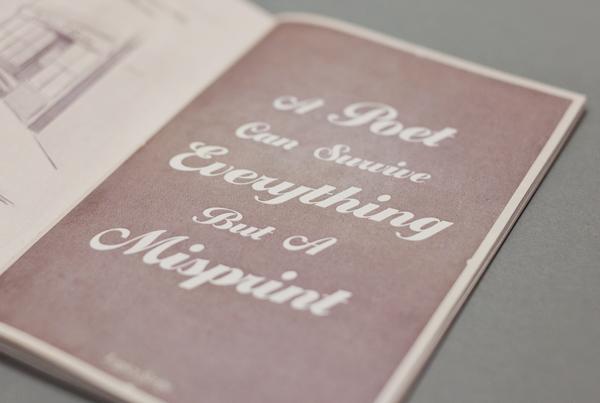 A Poet
Can Survive
Everything
But A
Misprint